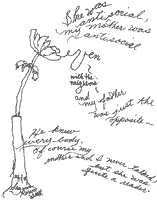 She was
antisocial,
my mother was
antisocial
even
with the
neighbors
and
my father
was just
the
opposite—
He knew
everybody,
of course my
mother and I never talked,
but she was
quite a reader.